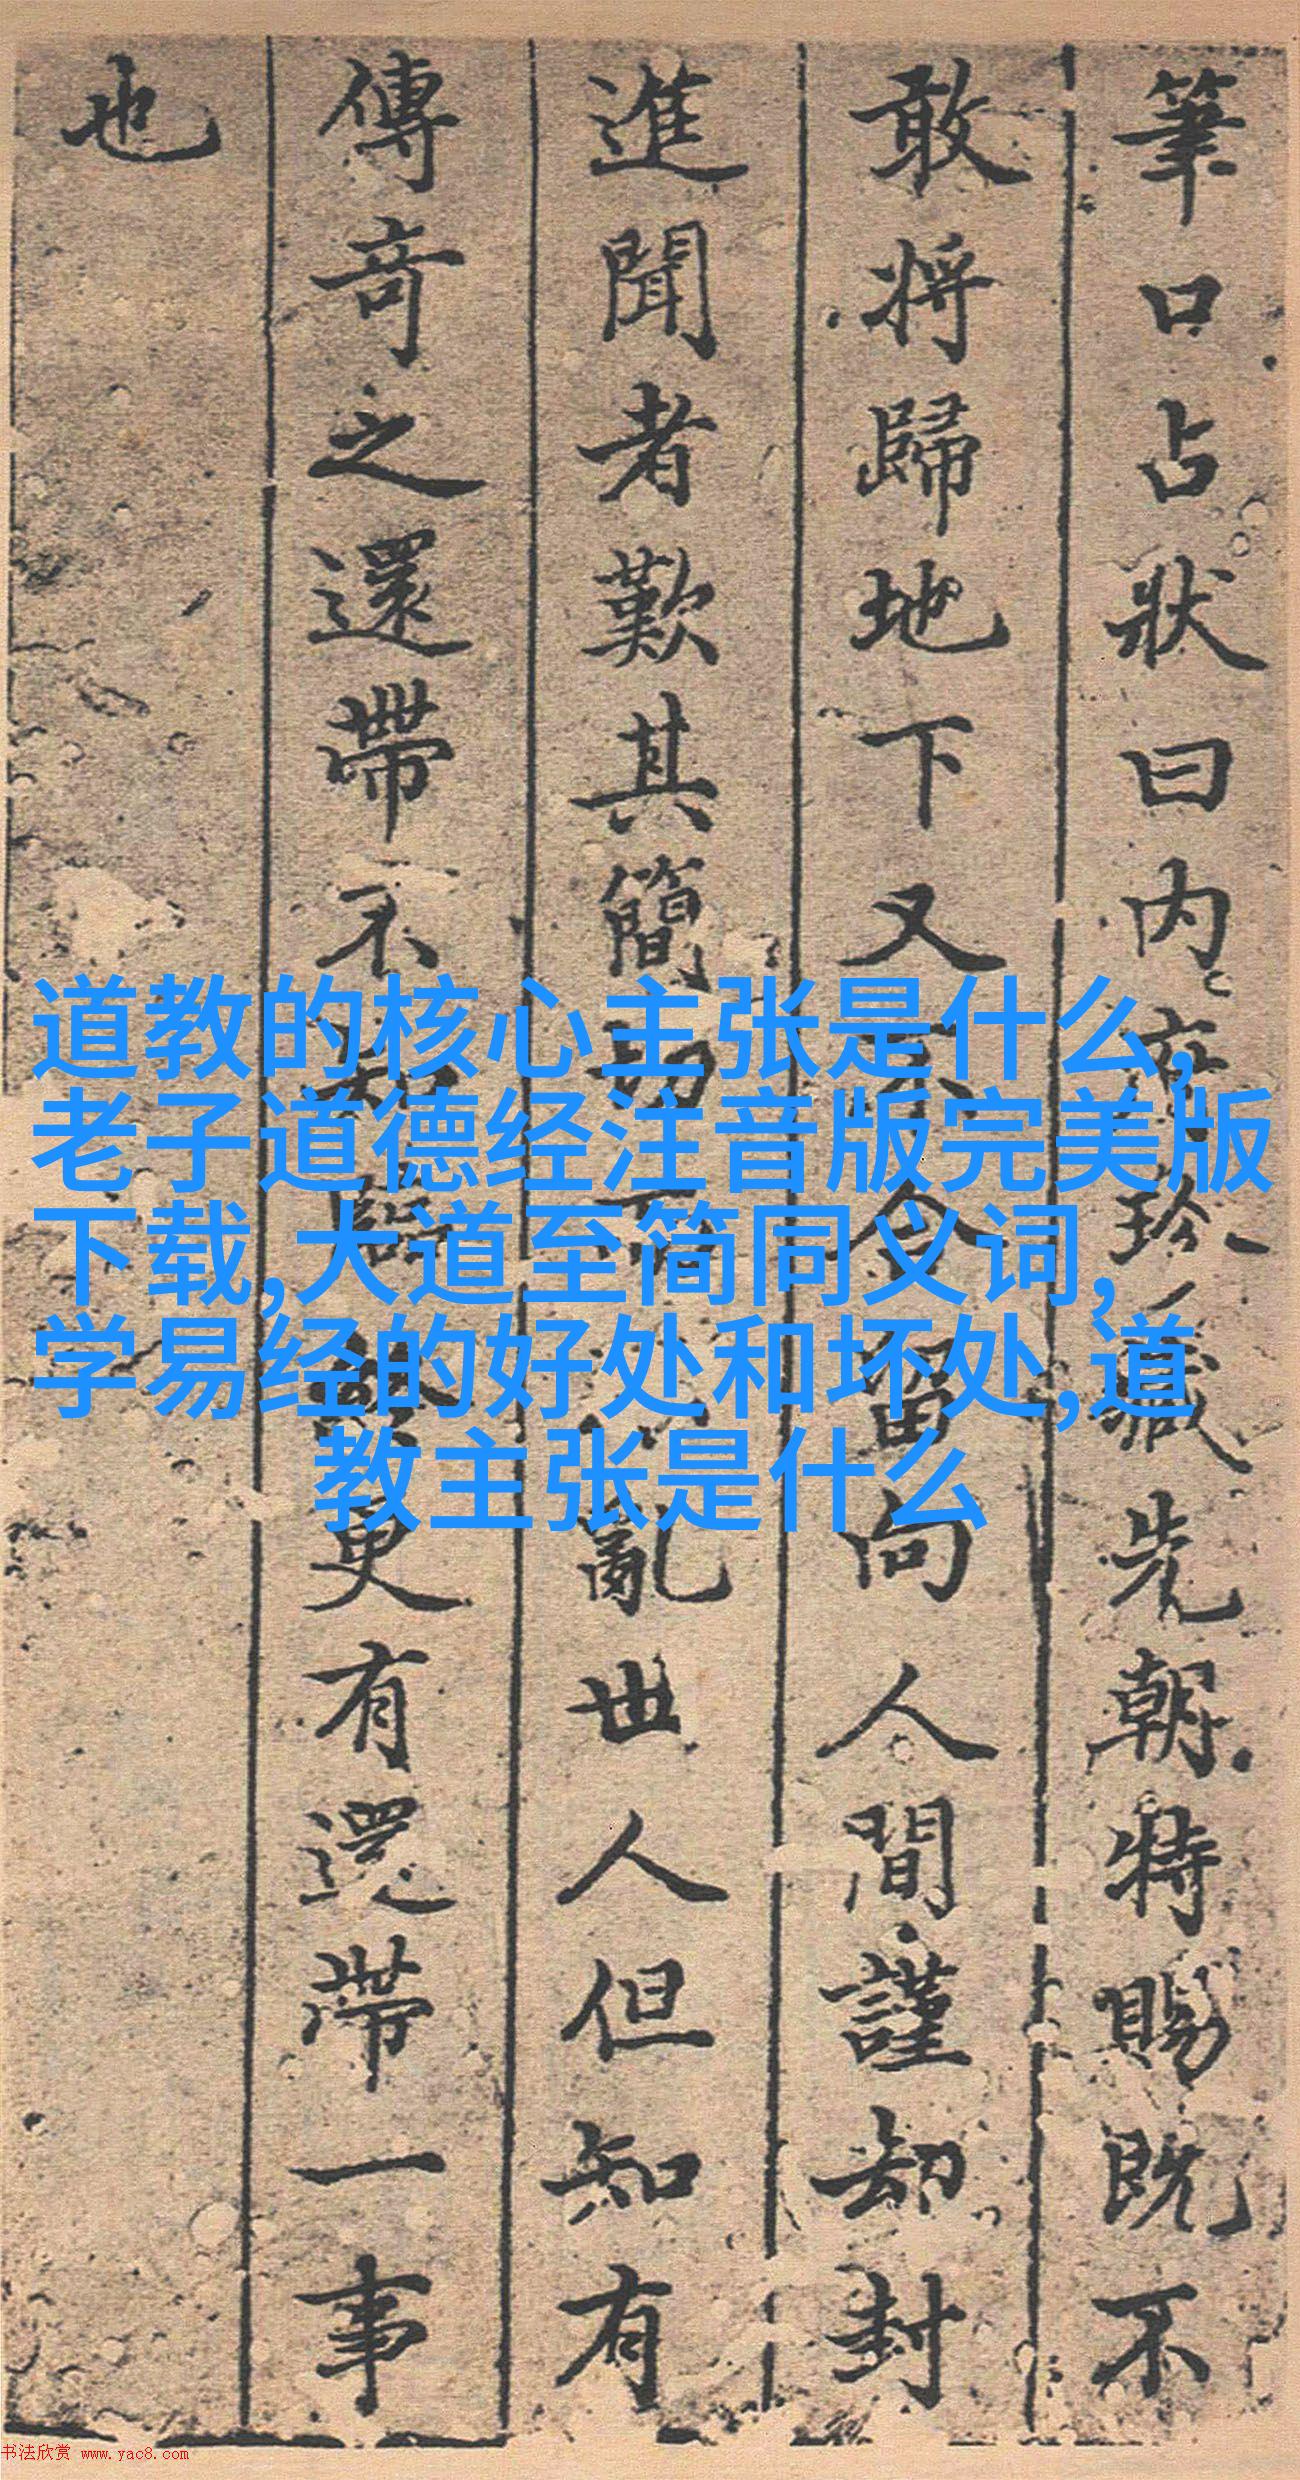 筆口占狀曰内府珍藏先朝特賜既不
敢将歸地下又不令留向人間謹却封
進聞者歎其簡切而亂世人但知有
傳奇之還帶不知臨更有還帶一事
也
道教的核心主张是什么,
老子道德经注音版完美版
下载,大道至简同义词,
学易经的好处和坏处,道
教主张是什么
书法欣赏 www.yac8.com